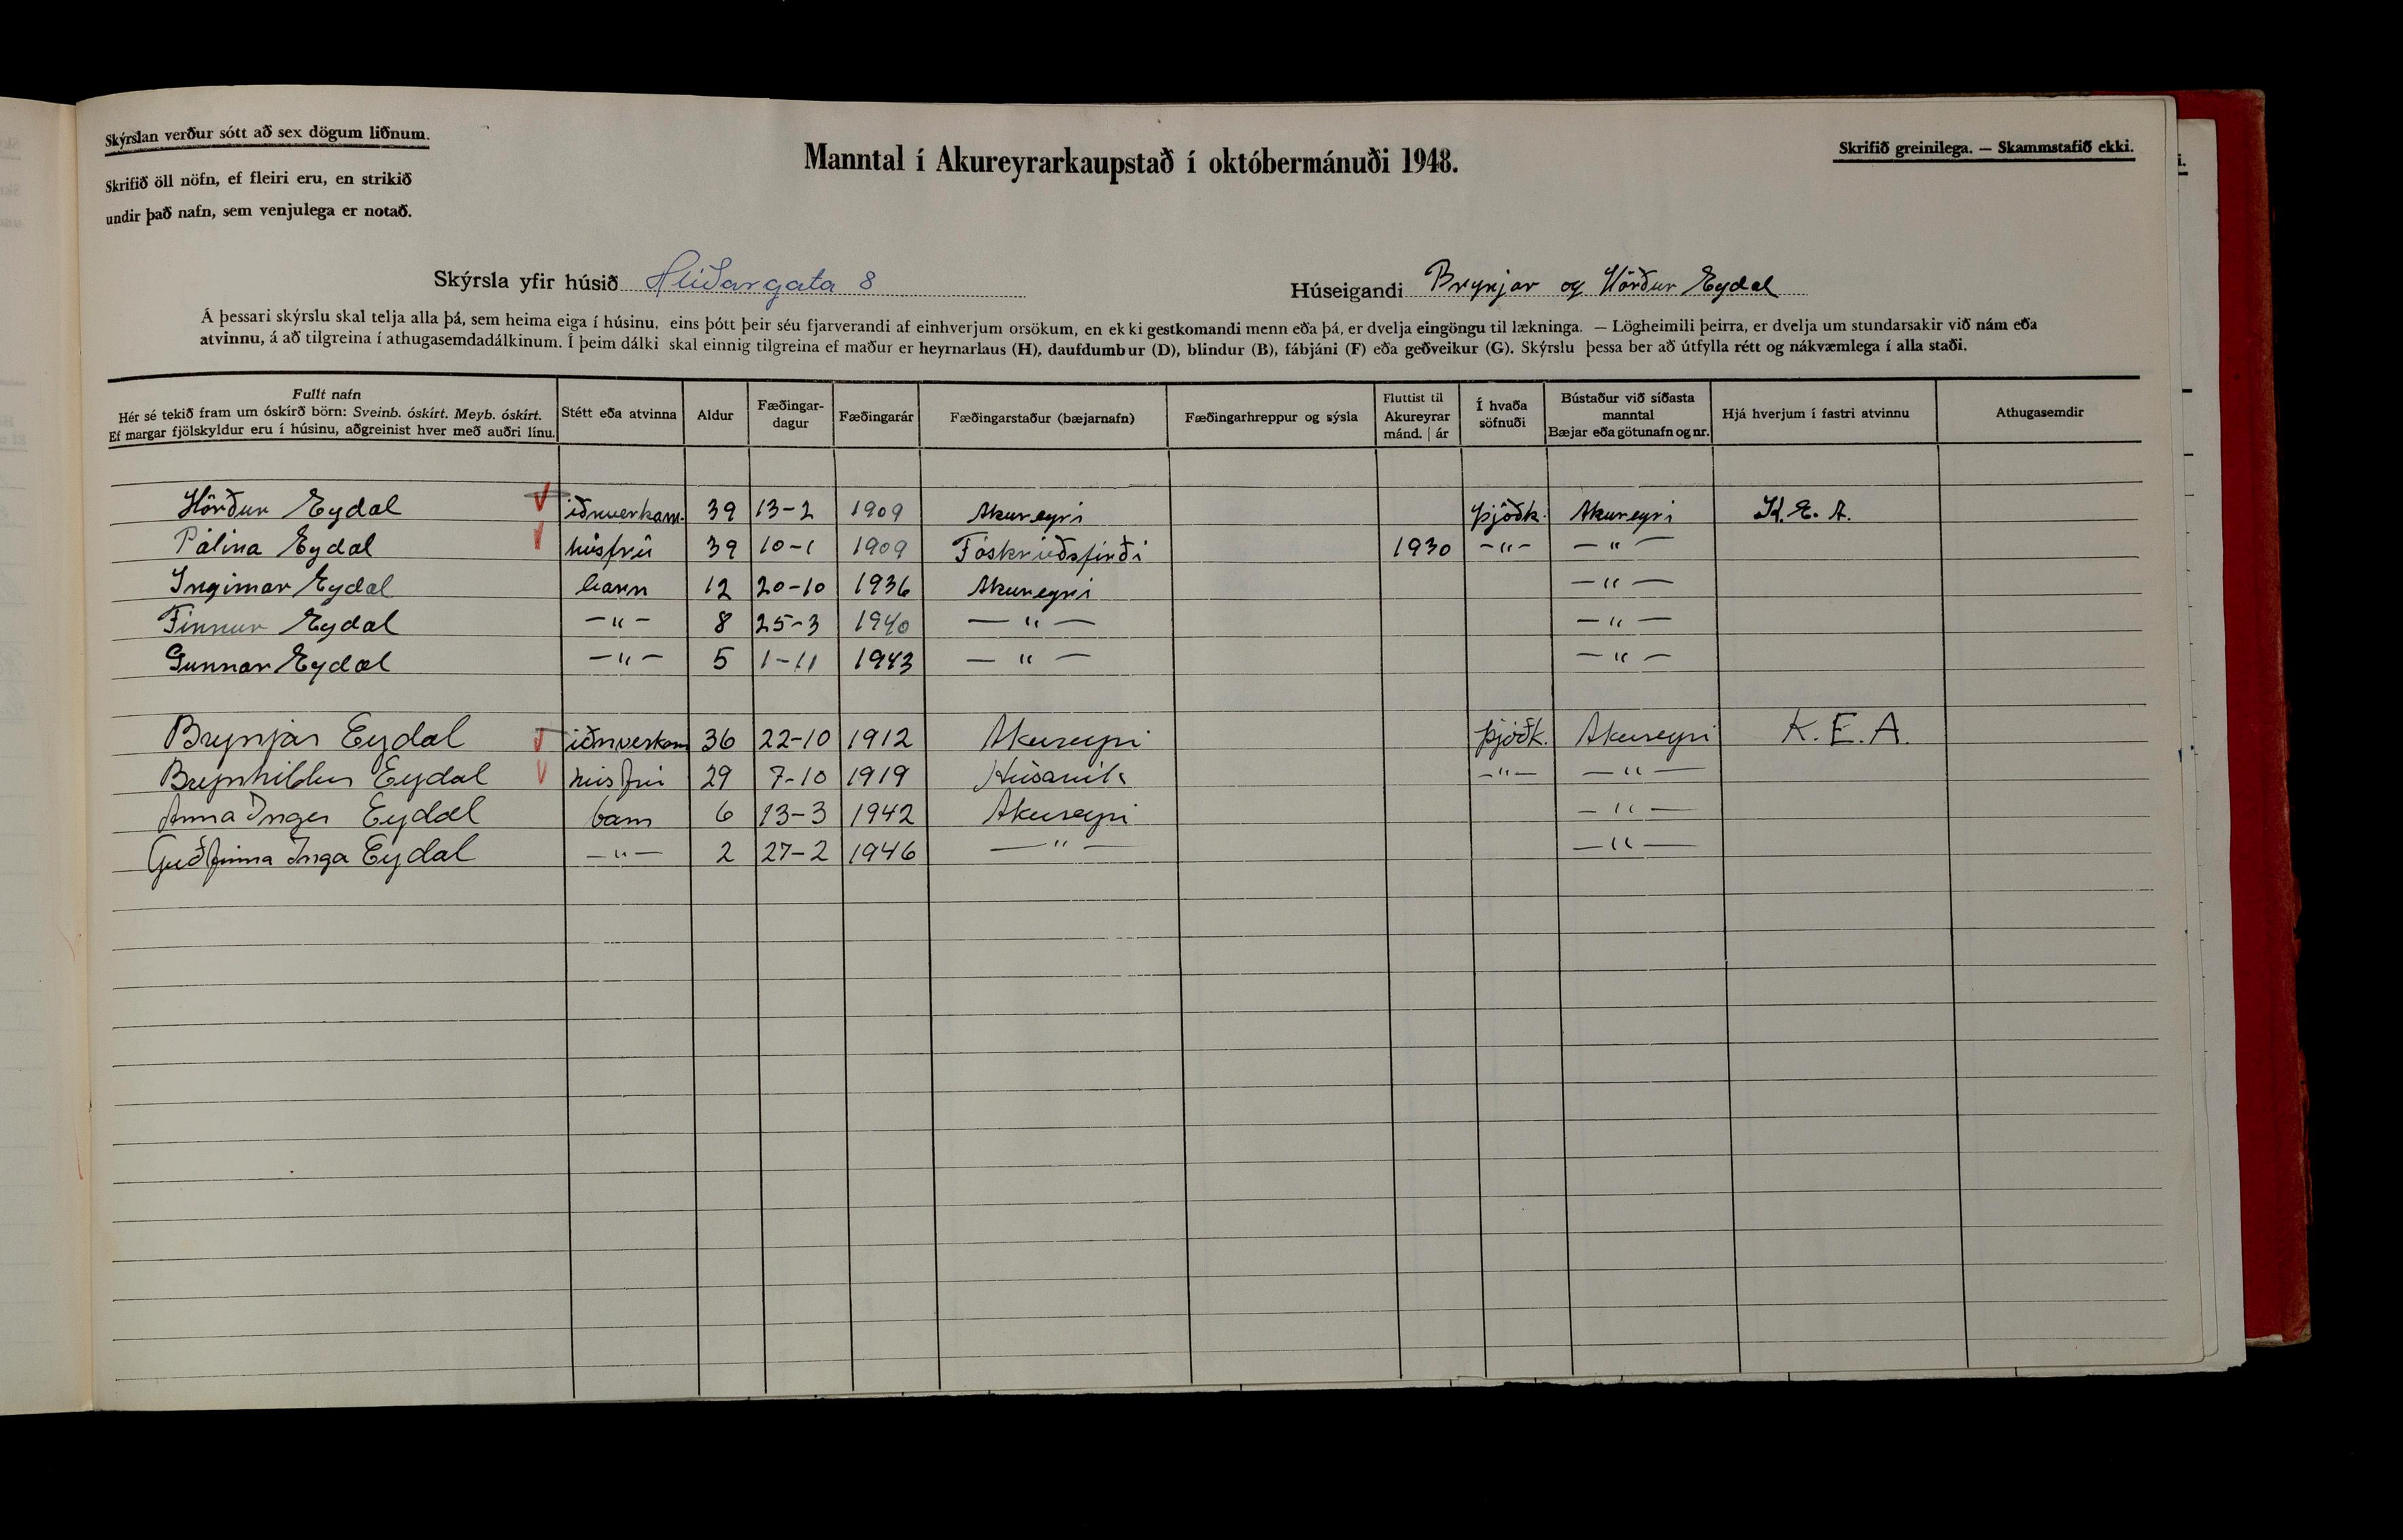 Skýrslan verður sótt að sex dögum liðnum.
Skrifið öll nöfn, ef fleiri eru, en strikið
undir það nafn, sem venjulega er notað.
Manntal í Akureyrarkaupstað í októbermánuði 1948.
Skrifið greinilega. — Skammstafið ekki.
Skýrsla yfir húsið Hlíðargata 8
Húseigandi Brynjar og Hörður Eydal
Á þessari skýrslu skal telja alla þá, sem heima eiga í húsinu, eins þótt þeir séu fjarverandi af einhverjum orsökum, en ekki gestkomandi menn eða þá, er dvelja eingöngu til lækninga. — Lögheimili þeirra, er dvelja um stundarsakir við nám eða
atvinnu, á að tilgreina í athugasemdadálkinum. Í þeim dálki skal einnig tilgreina ef maður er heyrnarlaus (H), daufdumbur (D), blindur (B), fábjáni (F) eða geðveikur (G). Skýrslu þessa ber að útfylla rétt og nákvæmlega í alla staði.
Fullt nafn
Hér sé tekið fram um óskírð börn: Sveinb. óskírt. Meyb. óskírt.
Ef margar fjölskyldur eru í húsinu, aðgreinist hver með auðri línu.
Stétt eða atvinna
Aldur
Fæðingar-
dagur
Fæðingarár
Fæðingarstaður (bæjarnafn)
Fæðingarhreppur og sýsla
Fluttist til
Akureyrar
mánd. | ár
Í hvaða
söfnuði
Bústaður við síðasta
manntal
Bæjar eða götunafn og nr.
Hjá hverjum í fastri atvinnu
Athugasemdir
Hörður Eydal iðnverkam. 39 13-2 1909 Akureyri þjóðk. Akureyri K. E. A.
Pálína Eydal húsfrú 39 10-1 1909 Fáskrúðsfirði 1930 -"- -"-
Ingimar Eydal barn 12 20-10 1936 Akureyri -"-
Finnur Eydal -"- 8 25-3 1940 -"- -"-
Gunnar Eydal -"- 5 1-11 1943 -"- -"-
Brynjar Eydal iðnverkam 36 22-10 1912 Akureyri þjóðk. Akureyri K. E. A.
Brynhildur Eydal húsfrú 29 7-10 1919 Húsavík -"- -"-
Anna Inger Eydal barn 6 13-3 1942 Akureyri -"-
Guðfinna Inga Eydal -"- 2 27-2 1946 -"- -"-